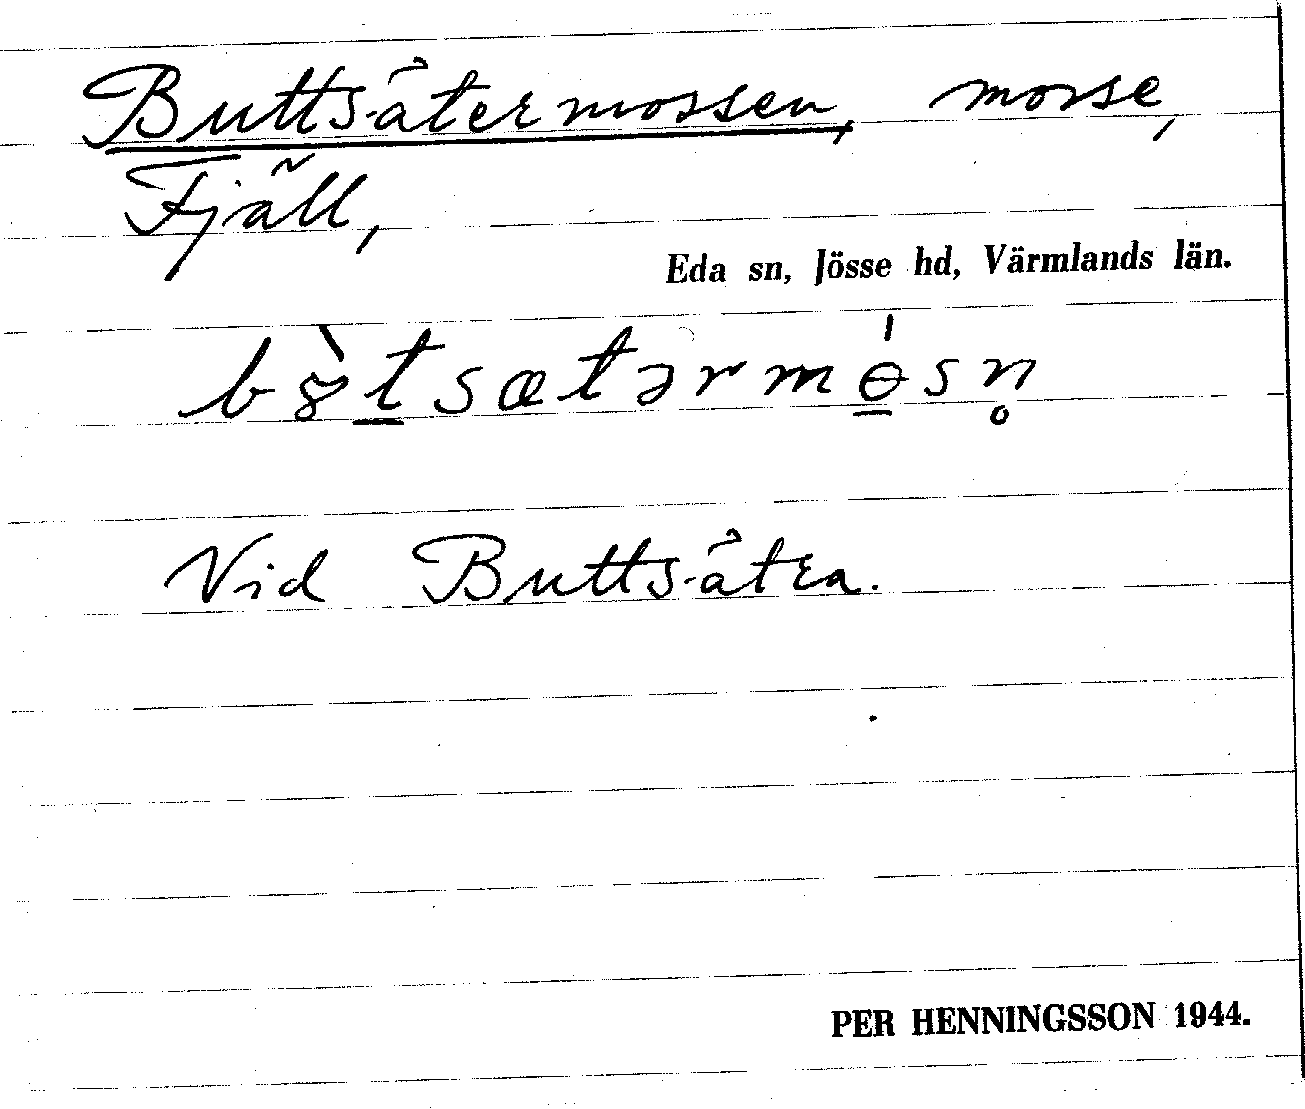 Buttsätermossen, mosse,
Fjäll,
Eda sn, Jösse hd, Värmlands län.
bȣ̀t̲sætərmɵ̲́sn̥
Vid Buttsätra.
PER HENNINGSSON 1944.